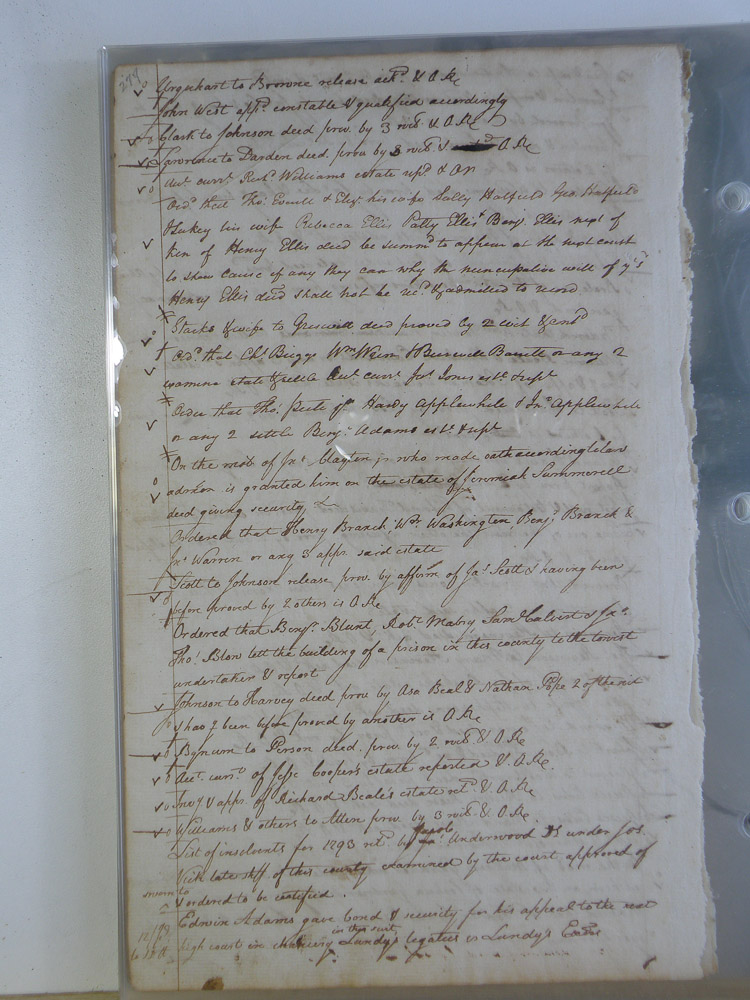 Urquehart to Browne release ackd. & O.Re
John West appd. constable & qualified accordingly
Clark to Johnson deed prov. by 3 witt. & O Re
Lawrence to Darden deed prov by 3 witt & O Re
Acct. currt. Richd. Williams estate retd & OR
Ordd. that Thos. Everitt & Eliza. his wife Sally Hatfield Geo. Hatfield
& Lukey his wife Rebecca Ellis Patty Ellis & Benj. Ellis next of
kin of Henry Ellis decd be summd to appear at the next court
to shew cause if any they can why the nuncupative will of ye sd
Henry Ellis decd shall not be recd. & admitted to record
& wife to deed proved by 2 witt &
Ordd. that Chs. Briggs Wm & Burwell Barrett or any 2
examine state & settle Acct. curr. Jas. Jones est. & rept
Order that Thos. Peete Hardy Applewhite & Jno. Applewhite
or any 2 settle Benj. Adams est. & rept
On the mot. of Jno. Clayton jr who made oath according to law
admon is granted him on the estate of Jeremiah Summerell
decd giving security &
Ordered that Henry Branch, Wm. Washington, Benj. Branch &
Jno. Warren or any 3 appr. said estate
Scott to Johnson release prov. by affirm. of Jas. Scott & having been
before proved by 2 others is O Re
Ordered that Benja. Blunt, Robt. Mabry Saml. Calvert & Jno.
Thos. Blow lett the building of a prison in this county to the lowest
undertaker & report
Johnson to Harvey deed prov. by Asa Beal & Nathan Pope 2 of the wit
& havg been before proved by another is O Re
Bynum to Person deed prov. by 2 witt. & O. Re
Acct. currt. of Jesse Cooper's estate reported & O. Re.
Invy & appr. of Richard Beale's estate retd. & O. Re
Williams & others to Allen prov. by 3 witt. & O. Re.
List of insolvents for 1793 retd. by Jacob Underwood DS under Jos.
Vick late shff of this county examined by the court approved of
& ordered to be certified.
sworn to
Edwin Adams gave bond & security for his appeal to the next
high court in chancery in this suit Lundy's legatees vs Lundy's Exors